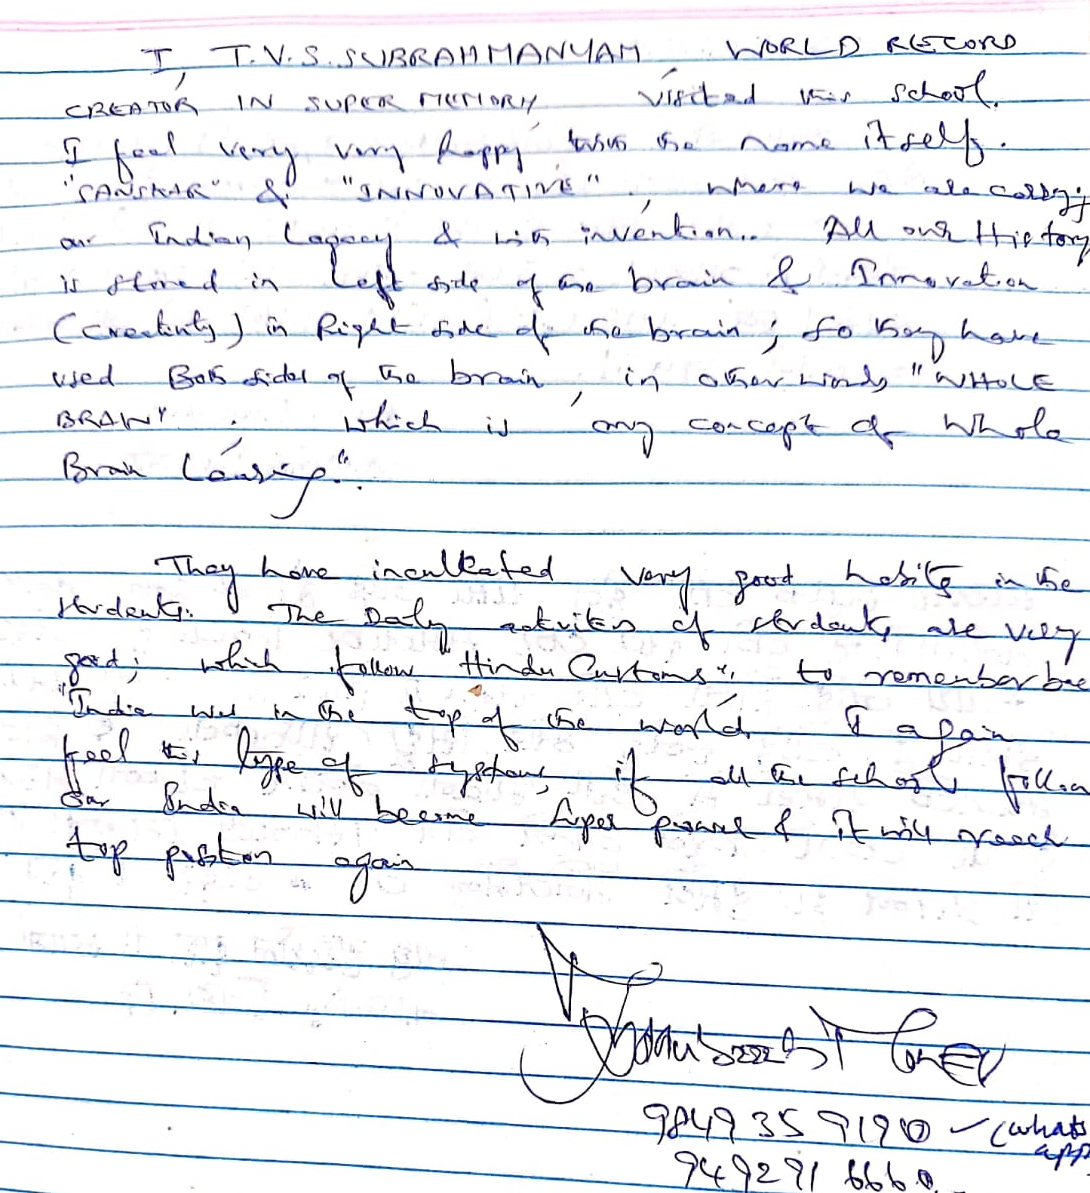 I, T.V.S. SUBRAHMANYAM WORLD RECORD
CREATOR IN SUPER MEMORY, visited this school.
I feel very very happy with the name itself.
"SANSKAR" & "INNOVATIVE", where we are carrying
our Indian Legacy & with invention.. All our History
is stored in Left side of the brain & Innovation
(Creativity) in Right side of the brain; so they have
used Both sides of the brain, in other words "WHOLE
BRAIN". which is my concept of Whole
Brain Learning".
They have inculkated very good habits in the
students. The Daily activities of students are very
good; which follow "Hindu Customs", to remember
"India was in the top of the world. I again
feel this type of systems, if all the schools follow
our India will become super power & it will reach
top position again
9849359190 - (whats
app
949291 6660